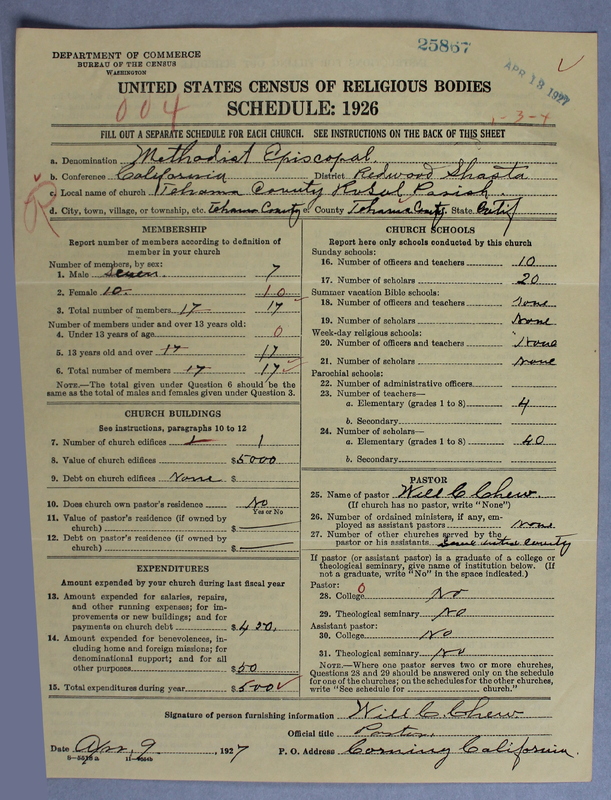 25867
APR 18 1927
DEPARTMENT OF COMMERCE
BUREAU OF THE CENSUS
WASHINGTON
UNITED STATES CENSUS OF RELIGIOUS BODIES
004
SCHEDULE: 1926
1-3-4
FILL OUT A SEPARATE SCHEDULE FOR EACH CHURCH. SEE INSTRUCTIONS ON THE BACK OF THIS SHEET
a. Denomination Methodist Episcopal.
b. Conference California District Redwood Shasta
c. Local name of church Tehama County Rural Parish.
d. City, town, village, or township, etc. Tehama County e. County Tehama County State Calif
R
MEMBERSHIP
Report number of members according to definition of
member in your church
Number of members, by sex:
1. Male seven 7
2. Female 10 10
3. Total number of members 17 17
Number of members under and over 13 years old:
4. Under 13 years of age 0
5. 13 years old and over 17 17
6. Total number of members 17 17
NOTE.—The total given under Question 6 should be the
same as the total of males and females given under Question 3.
CHURCH BUILDINGS
See instructions, paragraphs 10 to 12
7. Number of church edifices 1 1
8. Value of church edifices $5000
9. Debt on church edifices None $
10. Does church own pastor's residence No
Yes or No
11. Value of pastor's residence (if owned by
church) $
12. Debt on pastor's residence (if owned by
church) $
EXPENDITURES
Amount expended by your church during last fiscal year
13. Amount expended for salaries, repairs,
and other running expenses; for im-
provements or new buildings; and for
payments on church debt $450.
14. Amount expended for benevolences, in-
cluding home and foreign missions; for
denominational support; and for all
other purposes $50
15. Total expenditures during year $500
CHURCH SCHOOLS
Report here only schools conducted by this church
Sunday schools:
16. Number of officers and teachers 10
17. Number of scholars 20
Summer vacation Bible schools:
18. Number of officers and teachers none
19. Number of scholars None
Week-day religious schools:
20. Number of officers and teachers None
21. Number of scholars None
Parochial schools:
22. Number of administrative officers
23. Number of teachers—
a. Elementary (grades 1 to 8) 4
b. Secondary
24. Number of scholars—
a. Elementary (grades 1 to 8) 40
b. Secondary
PASTOR
25. Name of pastor Will C Chew.
(If church has no pastor, write "None")
26. Number of ordained ministers, if any, em-
ployed as assistant pastors none
27. Number of other churches served by the
pastor or his assistants County
If pastor (or assistant pastor) is a graduate of a college or
theological seminary, give name of institution below. (If
not a graduate, write "No" in the space indicated.)
Pastor: 0
28. College No
29. Theological seminary No
Assistant pastor:
30. College No
31. Theological seminary No
NOTE.—Where one pastor serves two or more churches,
Questions 28 and 29 should be answered only on the schedule
for one of the churches; on the schedules for the other churches,
write "See schedule for church."
Signature of person furnishing information Will C. Chew
Official title Pastor.
Date Apr. 9, 1927 P. O. Address Corning California.